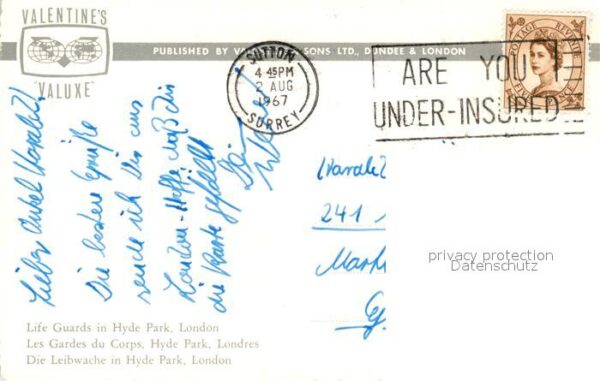 VALENTINE'S
"VALUXE"
PUBLISHED BY VALENTINE & SONS LTD., DUNDEE & LONDON
SUTTON
4 45 PM
2 AUG
1967
SURREY
ARE YOU
UNDER-INSURED
POSTAGE REVENUE
Lieber Onkel
Die besten Grüße
sende ich Dir aus
London - Hoffe daß dir
die Karte gefällt
Dein
241
privacy protection
Datenschutz
Life Guards in Hyde Park, London
Les Gardes du Corps, Hyde Park, Londres
Die Leibwache in Hyde Park, London